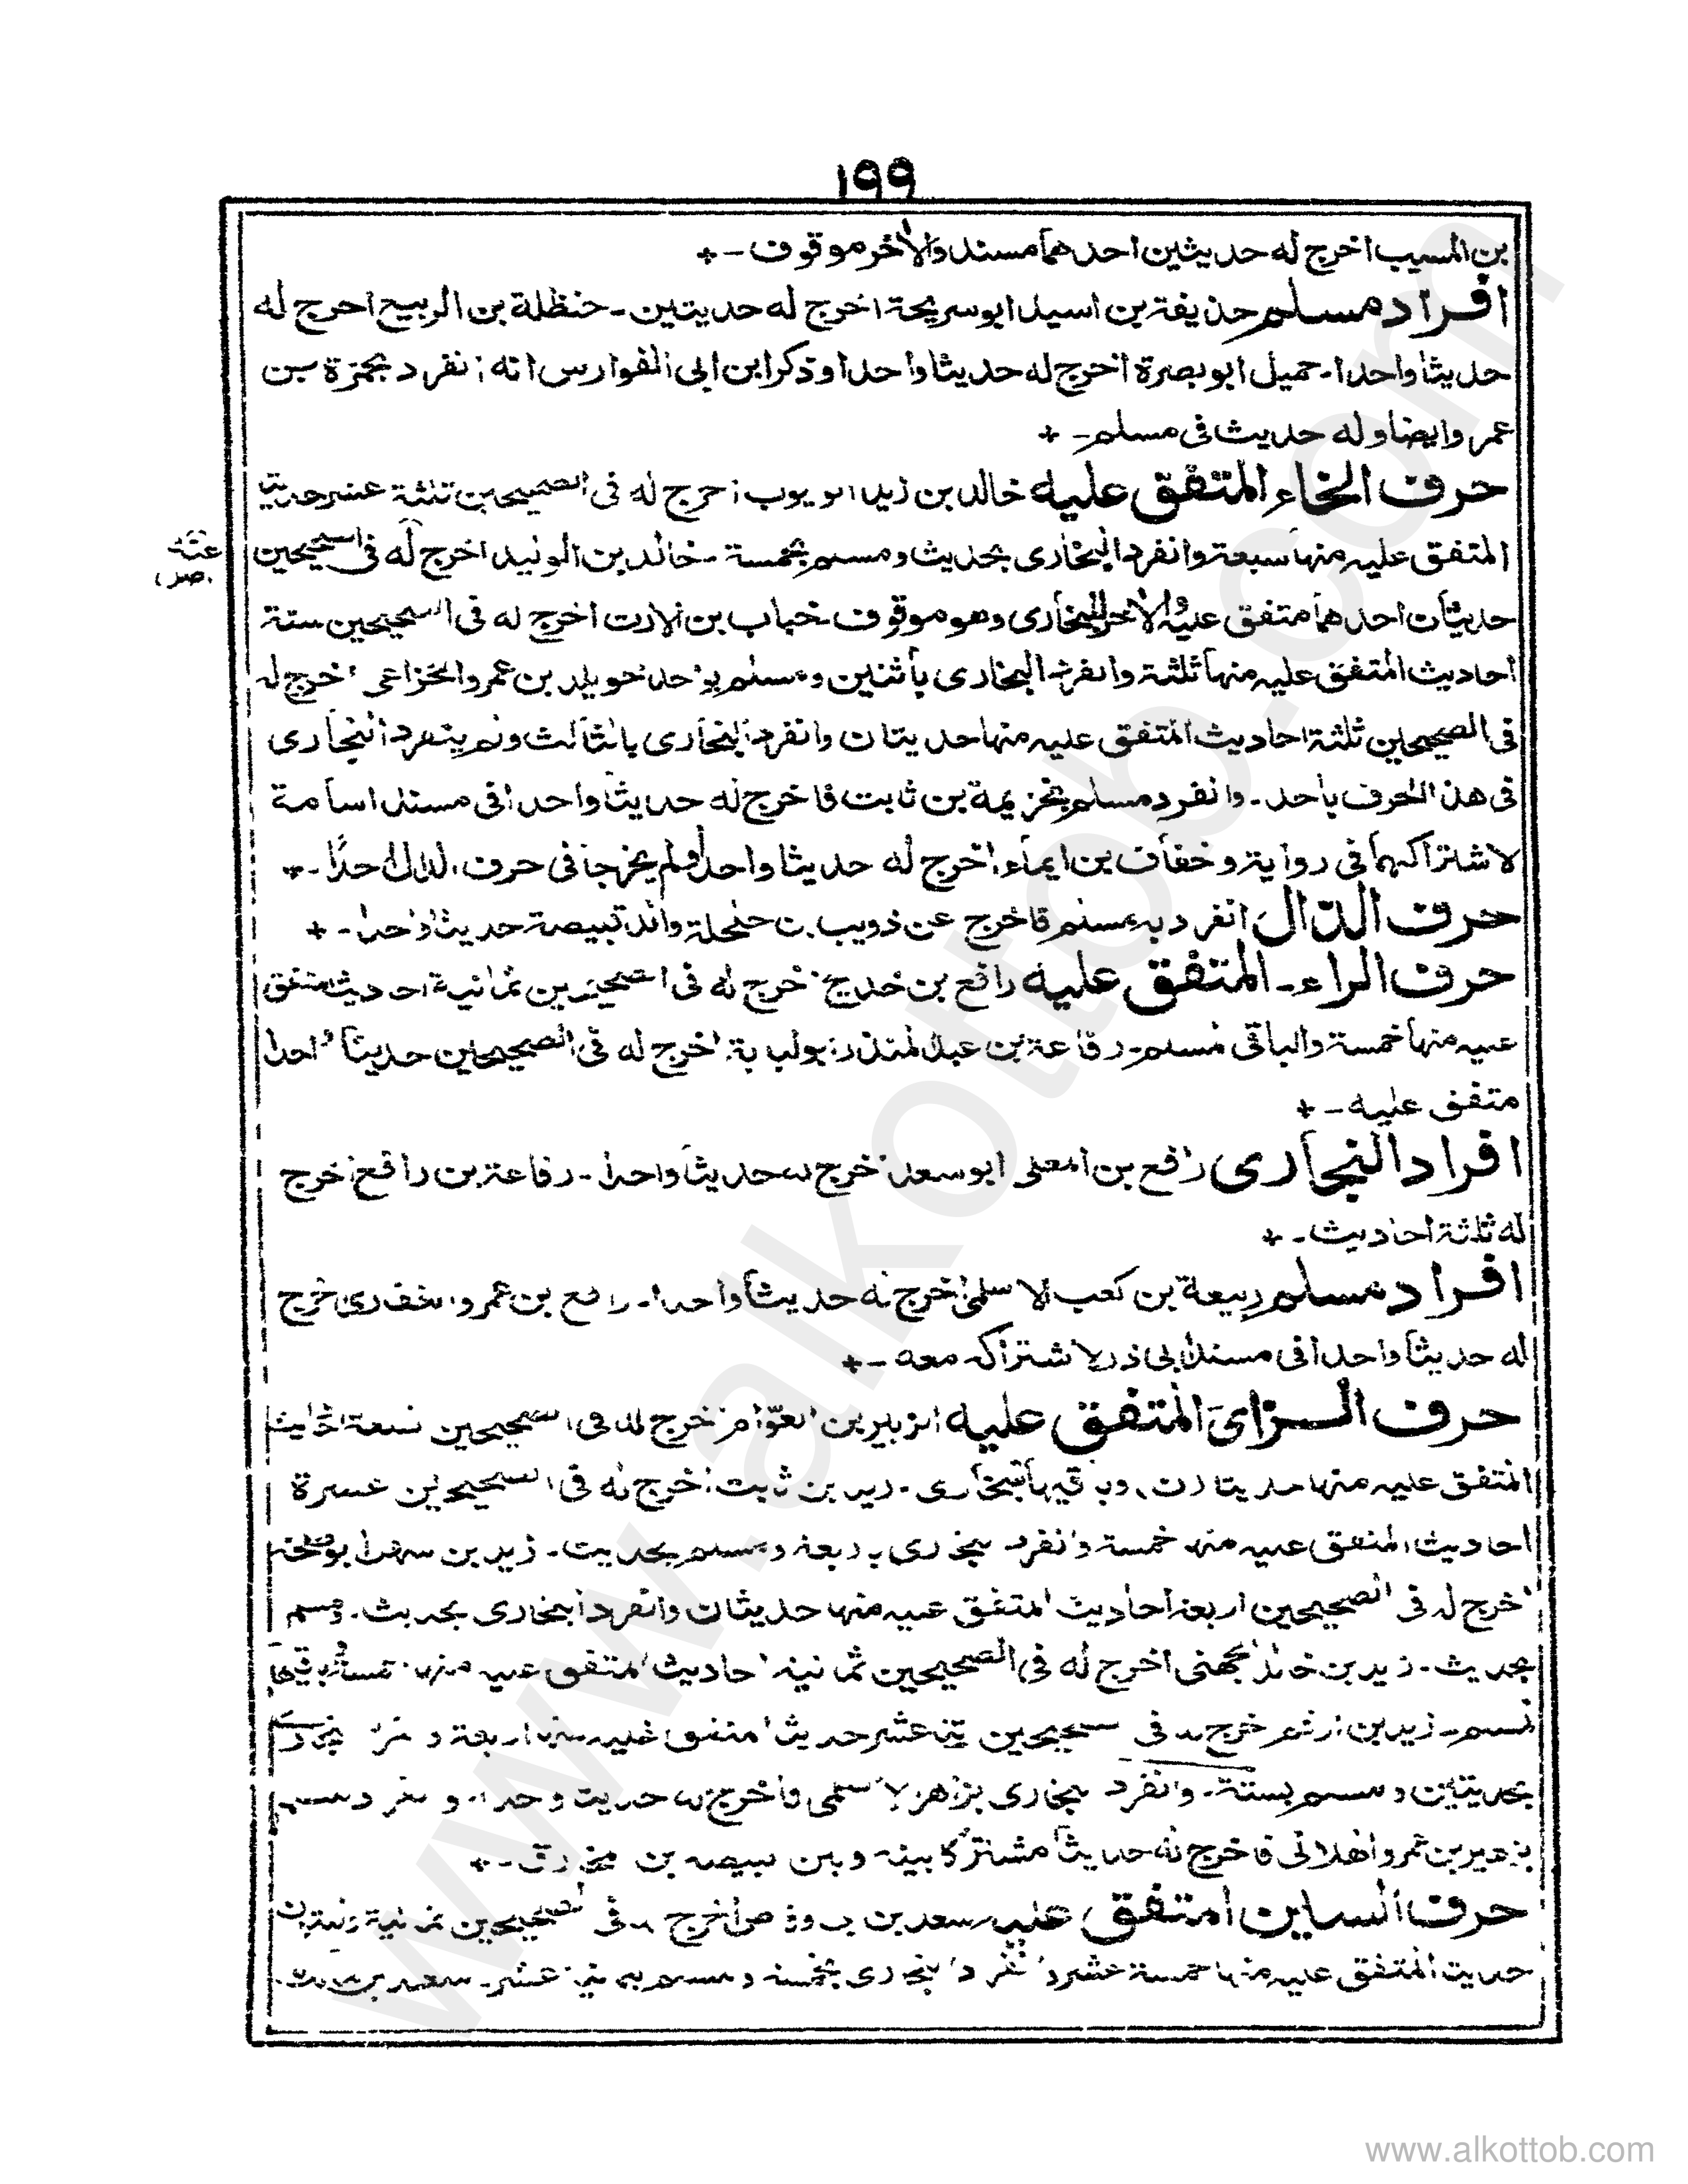 ١٩٩
بن المسيب اخرج له حديثين احدهما مسند والأخر موقوف -+
افراد مسلم حذيفة بن اسيد ابو سريحة اخرج له حديثين - حنظلة بن الربيع اخرج له
حديثا واحدا - حميل ابو بصرة اخرج له حديثا واحدا وذكر ابن ابى الفوارس انه انفرد بحمزة بن
عمرو ايضا وله حديث فى مسلم -+
حرف الخاء المتفق عليه خالد بن زيد ابو يوب اخرج له فى الصحيحين ثلثة عشر حديثا
المتفق عليه منها سبعة وانفرد البخارى بحديث ومسلم بخمسة - خالد بن الوليد اخرج له فى الصحيحين
حديثان احدهما متفق عليه والأخر للبخارى وهو موقوف - خباب بن الارت اخرج له فى الصحيحين ستة
احاديث المتفق عليه منها ثلثة وانفرد البخارى باثنين ومسلم بواحد خويلد بن عمرو الخزاعى اخرج له
فى الصحيحين ثلثة احاديث المتفق عليه منها حديثان وانفرد البخارى بالثالث ولم ينفرد البخارى
فى هذا الحرف باحد - وانفرد مسلم بخزيمة بن ثابت فاخرج له حديثا واحدا فى مسند اسامة
لاشتراكهما فى رواية وخفاف بن ايماء اخرج له حديثا واحدا ولم يخرجا فى حرف الدال احدًا -+
حرف الذال انفرد به مسلم فاخرج عن ذويب بن حلحلة والد قبيصة حديثا واحدا -+
حرف الراء - المتفق عليه رافع بن خديج اخرج له فى الصحيحين ثمانية احاديث المتفق
عليه منها خمسة والباقى لمسلم - رفاعة بن عبد المنذر ابو لبابة اخرج له فى الصحيحين حديثا واحدا
متفق عليه -+
افراد البخارى رافع بن المعلى ابو سعد اخرج له حديثا واحدا - رفاعة بن رافع اخرج
له ثلثة احاديث -+
افراد مسلم ربيعة بن كعب الاسلمى اخرج له حديثا واحدا - رافع بن عمرو الغفارى اخرج
له حديثا واحدا فى مسند ابى ذر لاشتراكه معه -+
حرف الزاى المتفق عليه الزبير بن العوام اخرج له فى الصحيحين تسعة احاديث
المتفق عليه منها حديثان وباقيها للبخارى - زيد بن ثابت اخرج له فى الصحيحين عشرة
احاديث المتفق عليه منها خمسة وانفرد البخارى باربعة ومسلم بحديث - زيد بن سهل ابو طلحة
اخرج له فى الصحيحين اربعة احاديث المتفق عليه منها حديثان وانفرد البخارى بحديث - ومسلم
بحديث - زيد بن خالد الجهنى اخرج له فى الصحيحين ثمانية احاديث المتفق عليه منها خمسة وباقيها
لمسلم - زيد بن ارقم اخرج له فى الصحيحين عشر حديثا المتفق عليه منها اربعة و البخارى
بحديثين ومسلم بستة - وانفرد البخارى بزاهر الاسلمى فاخرج له حديثا واحدا - وانفرد مسلم
بزهير بن عمرو الهلالى فاخرج له حديثا مشتركا بينه وبين قبيصة بن مخارق -+
حرف السين المتفق عليه سعد بن ابى وقاص اخرج له فى الصحيحين ثمانية وثلثين
حديثا المتفق عليه منها خمسة عشر وانفرد البخارى بخمسة ومسلم بثمانية عشر - سعد بن